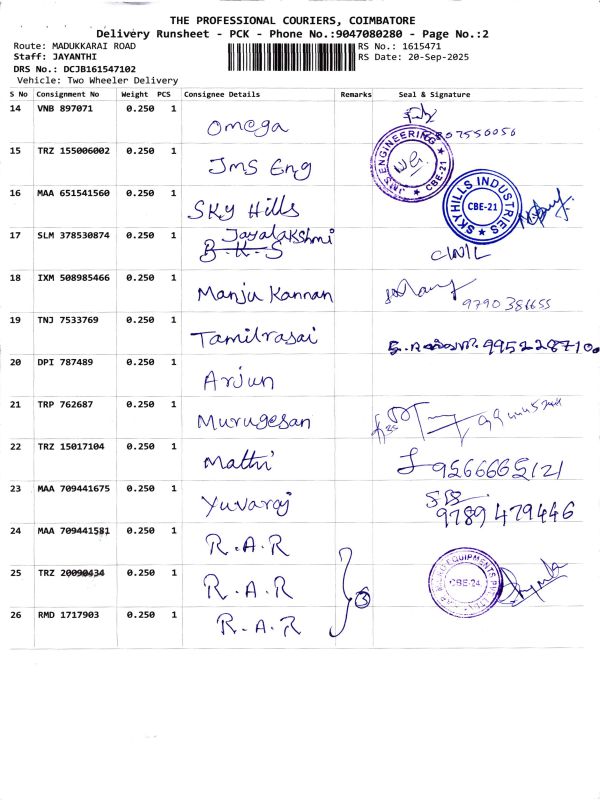 THE PROFESSIONAL COURIERS, COIMBATORE
Delivery Runsheet - PCK - Phone No.:9047080280 - Page No.:2
Route: MADUKKARAI ROAD RS No.: 1615471
Staff: JAYANTHI RS Date: 20-Sep-2025
DRS No.: DCJB161547102
Vehicle: Two Wheeler Delivery
S No Consignment No Weight PCS Consignee Details Remarks Seal & Signature
14 VNB 897071 0.250 1 Omega
15 TRZ 155006002 0.250 1 Jms Eng JMS ENGINEERING CBE-21
16 MAA 651541560 0.250 1 SKY Hills SKYHILLS INDUSTRIES CBE-21
17 SLM 378530874 0.250 1 Jayalakshmi
B-K-S
18 IXM 508985466 0.250 1 Manju Kannan 9790386655
19 TNJ 7533769 0.250 1 Tamilrasai
20 DPI 787489 0.250 1 Arjun
21 TRP 762687 0.250 1 Murugesan
22 TRZ 15017104 0.250 1 Mathi
23 MAA 709441675 0.250 1 Yuvaraj 9789479446
24 MAA 709441581 0.250 1 R.A.R
25 TRZ 20090434 0.250 1 R.A.R 3 EQUIPMENTS CBE-24
26 RMD 1717903 0.250 1 R.A.R